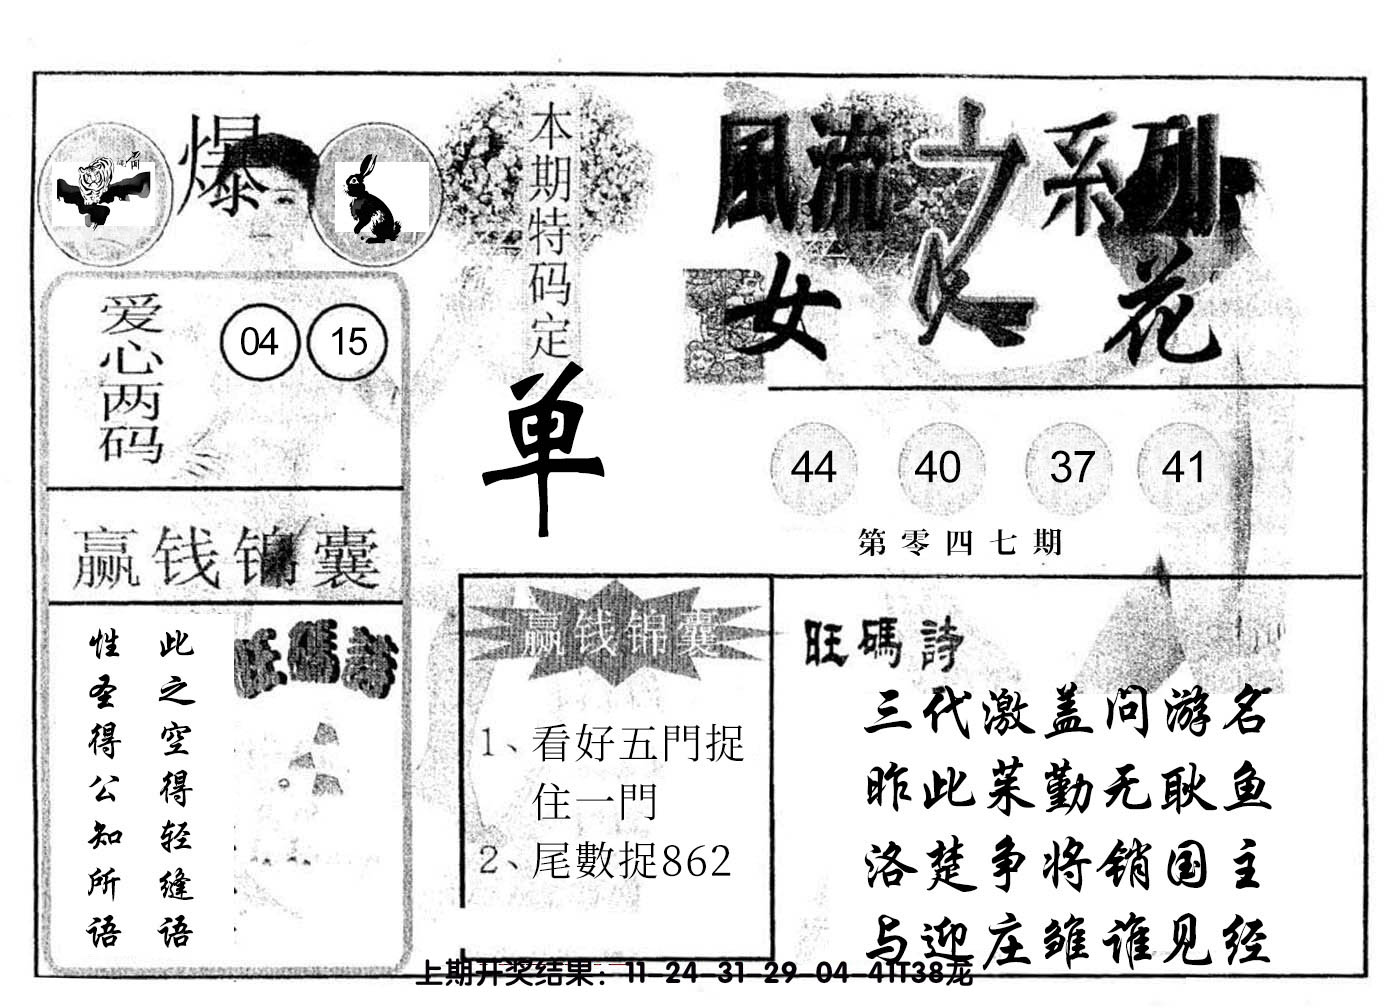 爆
本期特码定
单
風流之系列
女人花
爱心两码
04 15
44 40 37 41
第零四七期
赢钱锦囊
此之空得轻缝语
性圣得公知所语
旺碼詩
赢钱锦囊
1、看好五門捉
住一門
2、尾數捉862
旺碼詩
三代激盖问游名
昨此茱勤无耿鱼
洛楚争将销国主
与迎庄雏谁见经
上期开奖结果：11-24-31-29-04-41T38龙